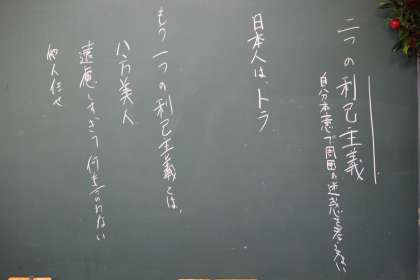 二つの利己主義
自分本意で周囲の迷惑を考えない
日本人は、トラ
もう一つの利己主義とは、
八方美人
遠慮しすぎて何も言わない
他人任せ